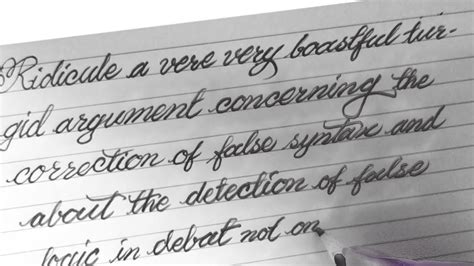 Ridicule a vere very boastful tur-
gid argument concerning the
correction of false syntax and
about the detection of false
logic in debat not on